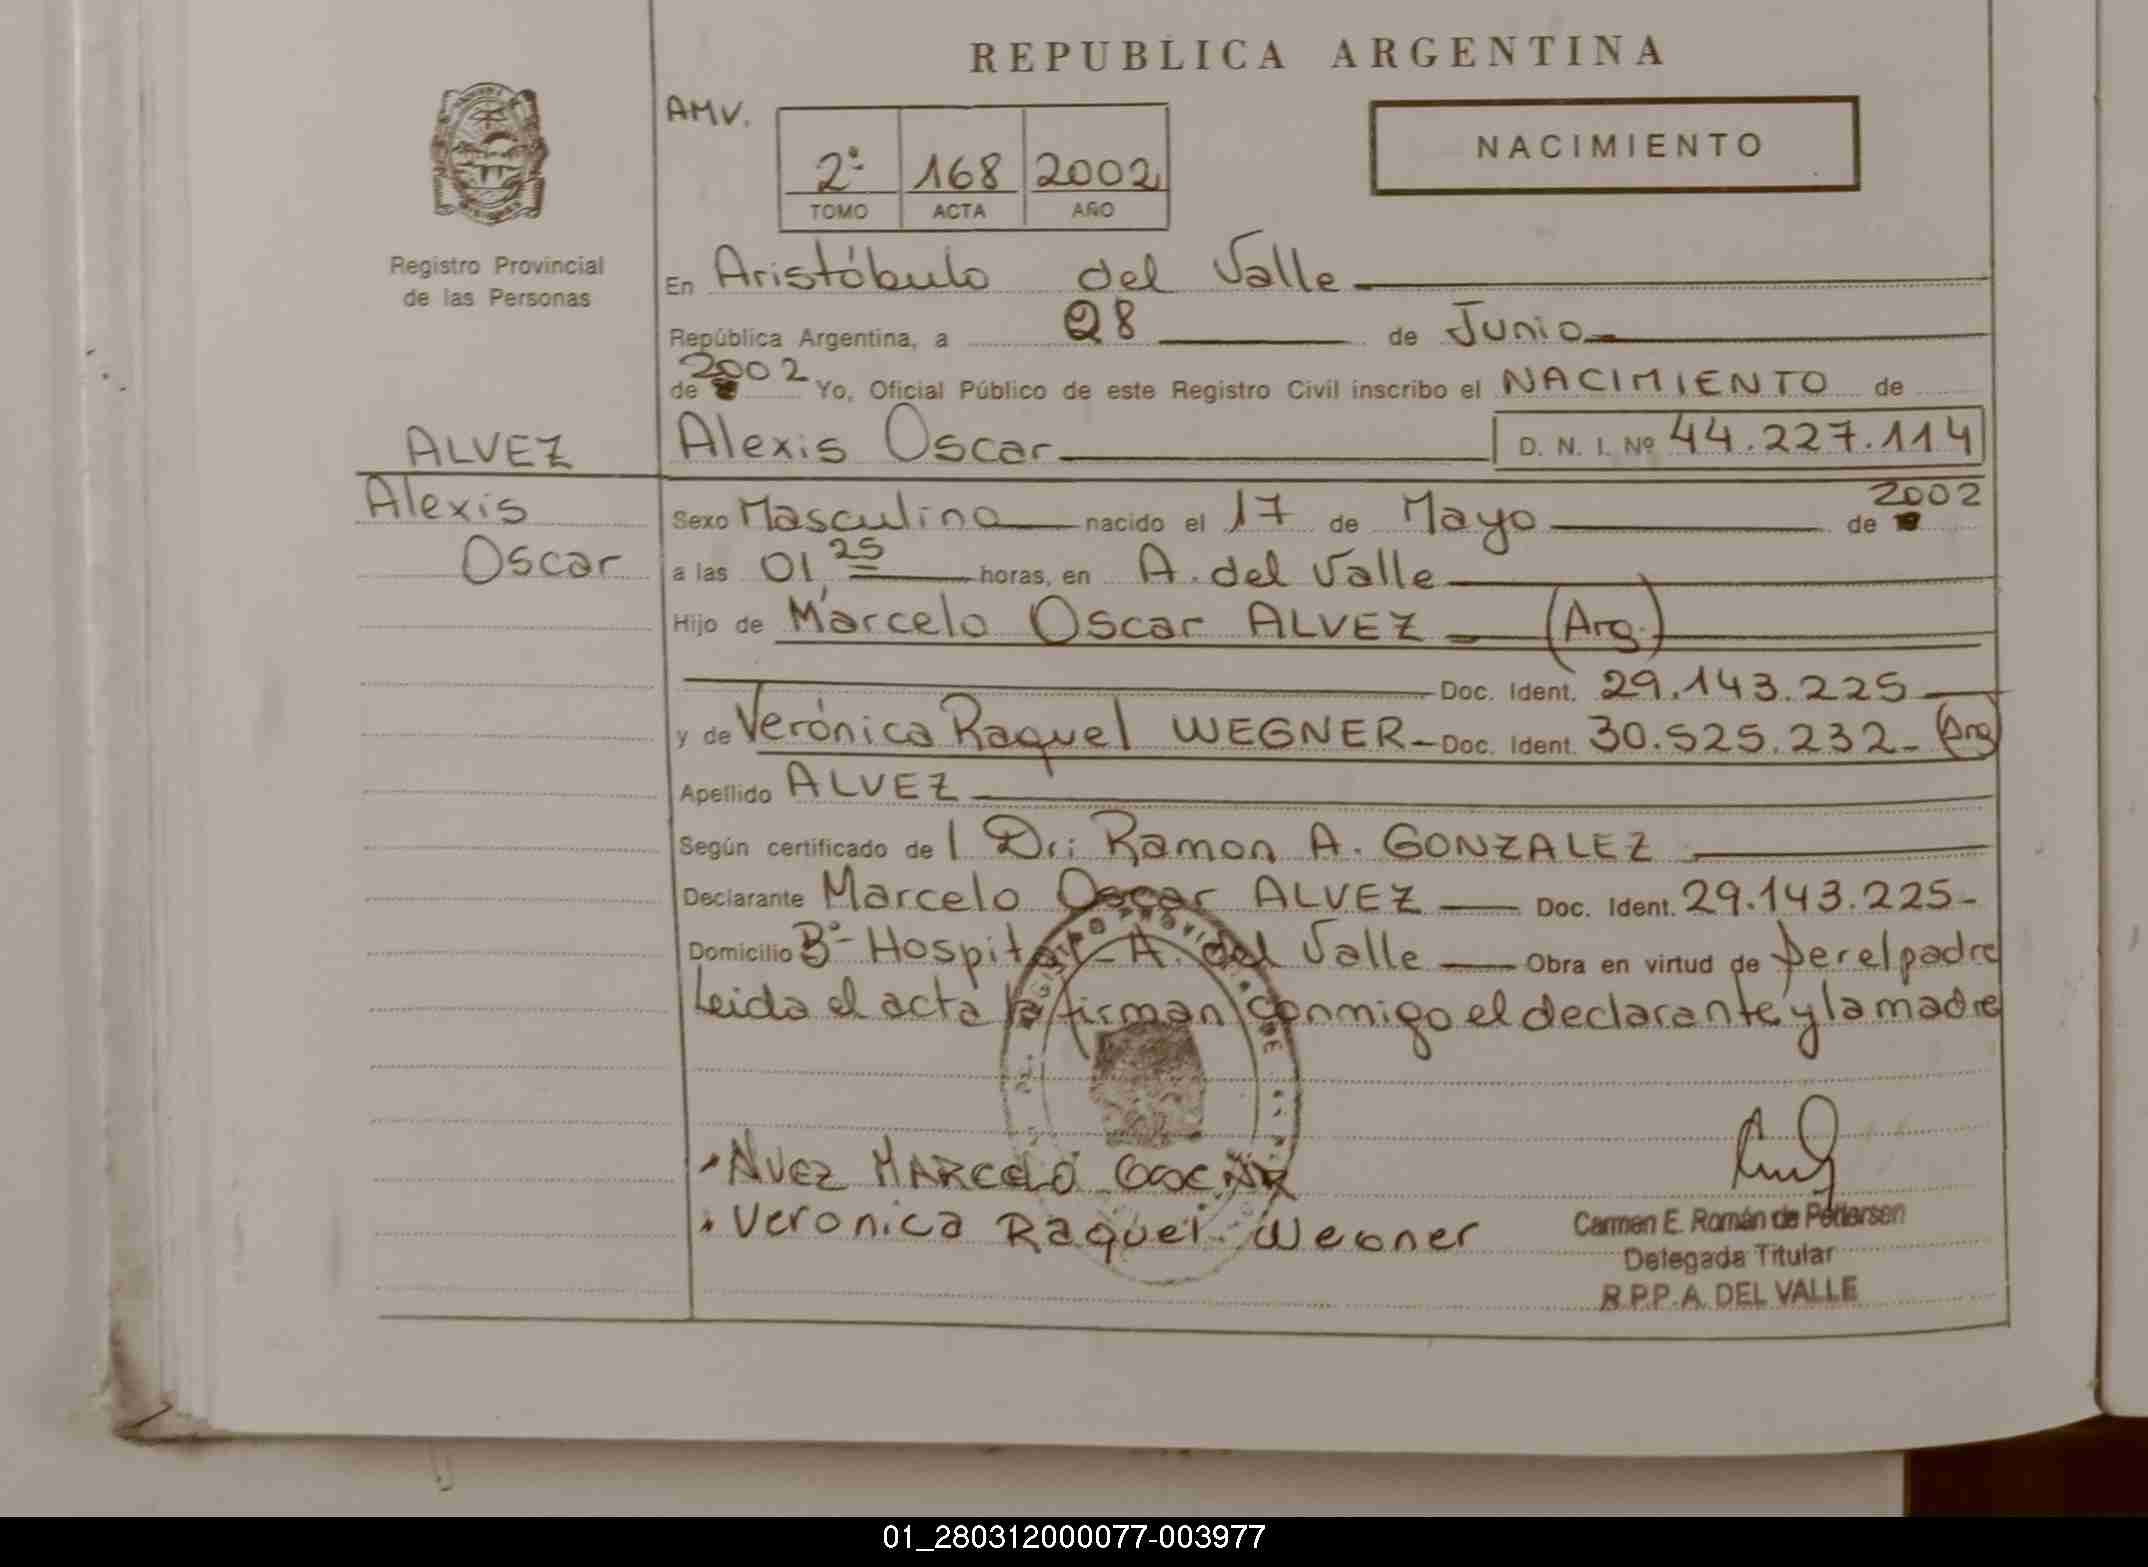 REPUBLICA ARGENTINA
AMV.
NACIMIENTO
2º 168 2002
TOMO ACTA AÑO
Registro Provincial
de las Personas
En Aristóbulo del Valle
República Argentina, a 28 de Junio
de 2002 Yo, Oficial Público de este Registro Civil inscribo el NACIMIENTO de
ALVEZ
Alexis Oscar D. N. I. Nº 44.227.114
Alexis
Oscar
Sexo Masculino nacido el 17 de Mayo de 2002
a las 01,25 horas, en A. del Valle
Hijo de Marcelo Oscar ALVEZ (Arg.)
Doc. Ident. 29.143.225
y de Verónica Raquel WEGNER- Doc. Ident. 30.525.232- (Arg)
Apellido ALVEZ
Según certificado de l Dr: Ramon A. GONZALEZ
Declarante Marcelo Oscar ALVEZ Doc. Ident. 29.143.225-
Domicilio Bº- Hospital - A. del Valle Obra en virtud de ser el padre
Leida el acta la firman conmigo el declarante y la madre
ALVEZ MARCELO OSCAR
Veronica Raquel Wegner
Carmen E. Román de Pedersen
Delegada Titular
R.P.P. A. DEL VALLE
01_280312000077-003977